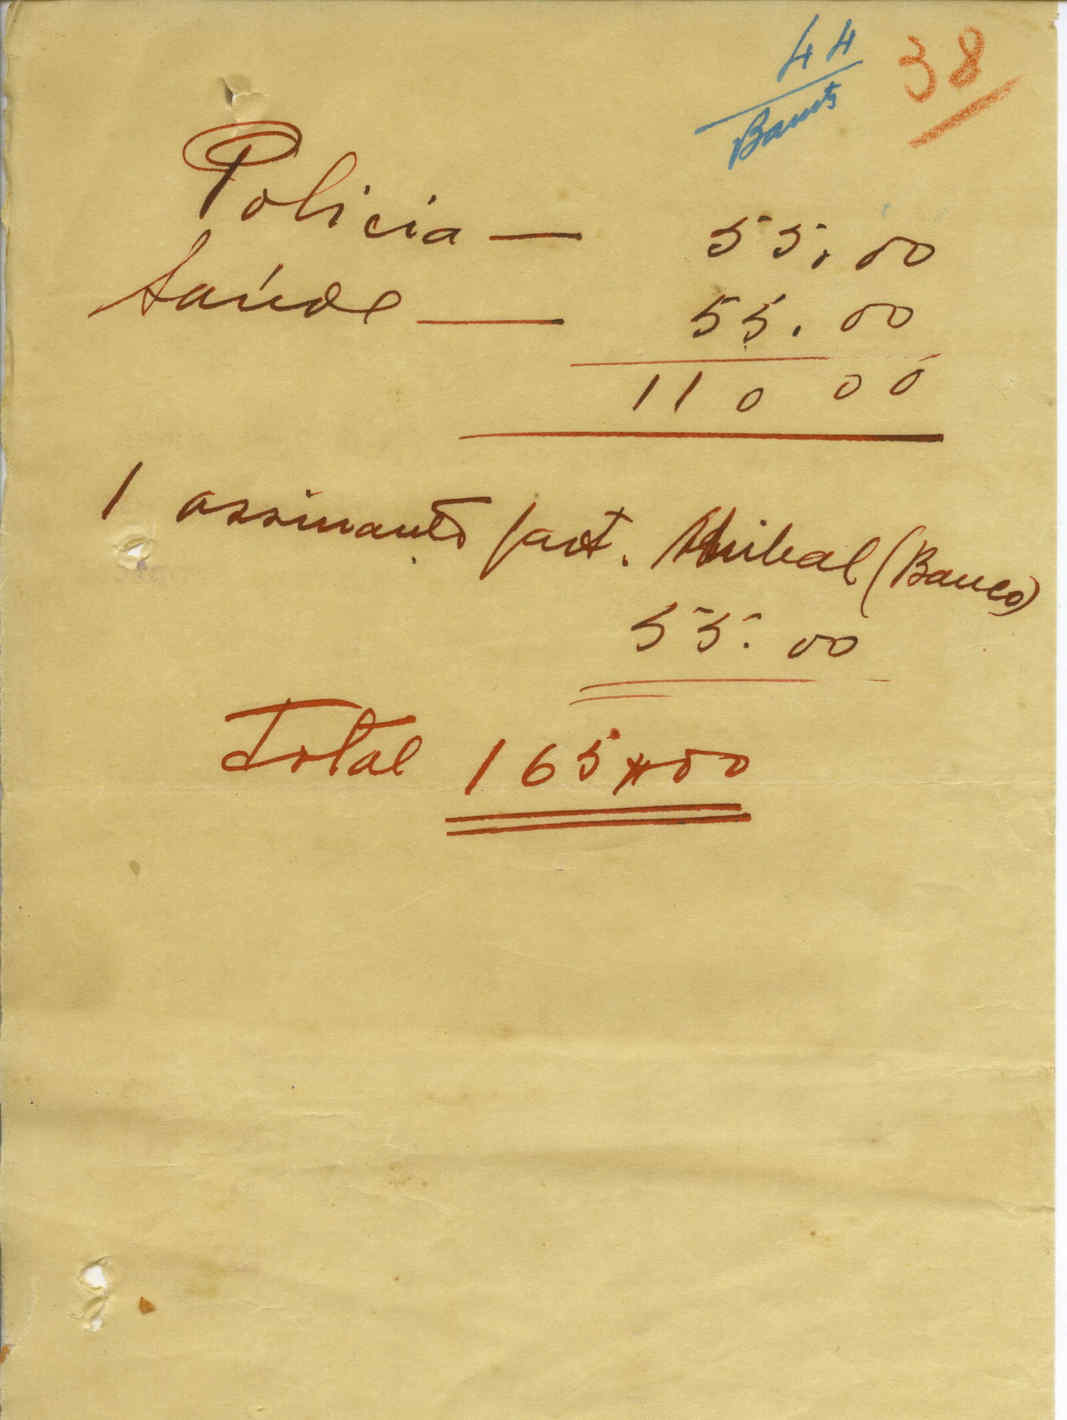 44
38
Policia — 55.00
Saúde — 55.00
110 00
1 assinante part. Anibal (Banco)
55.00
Total 165#00